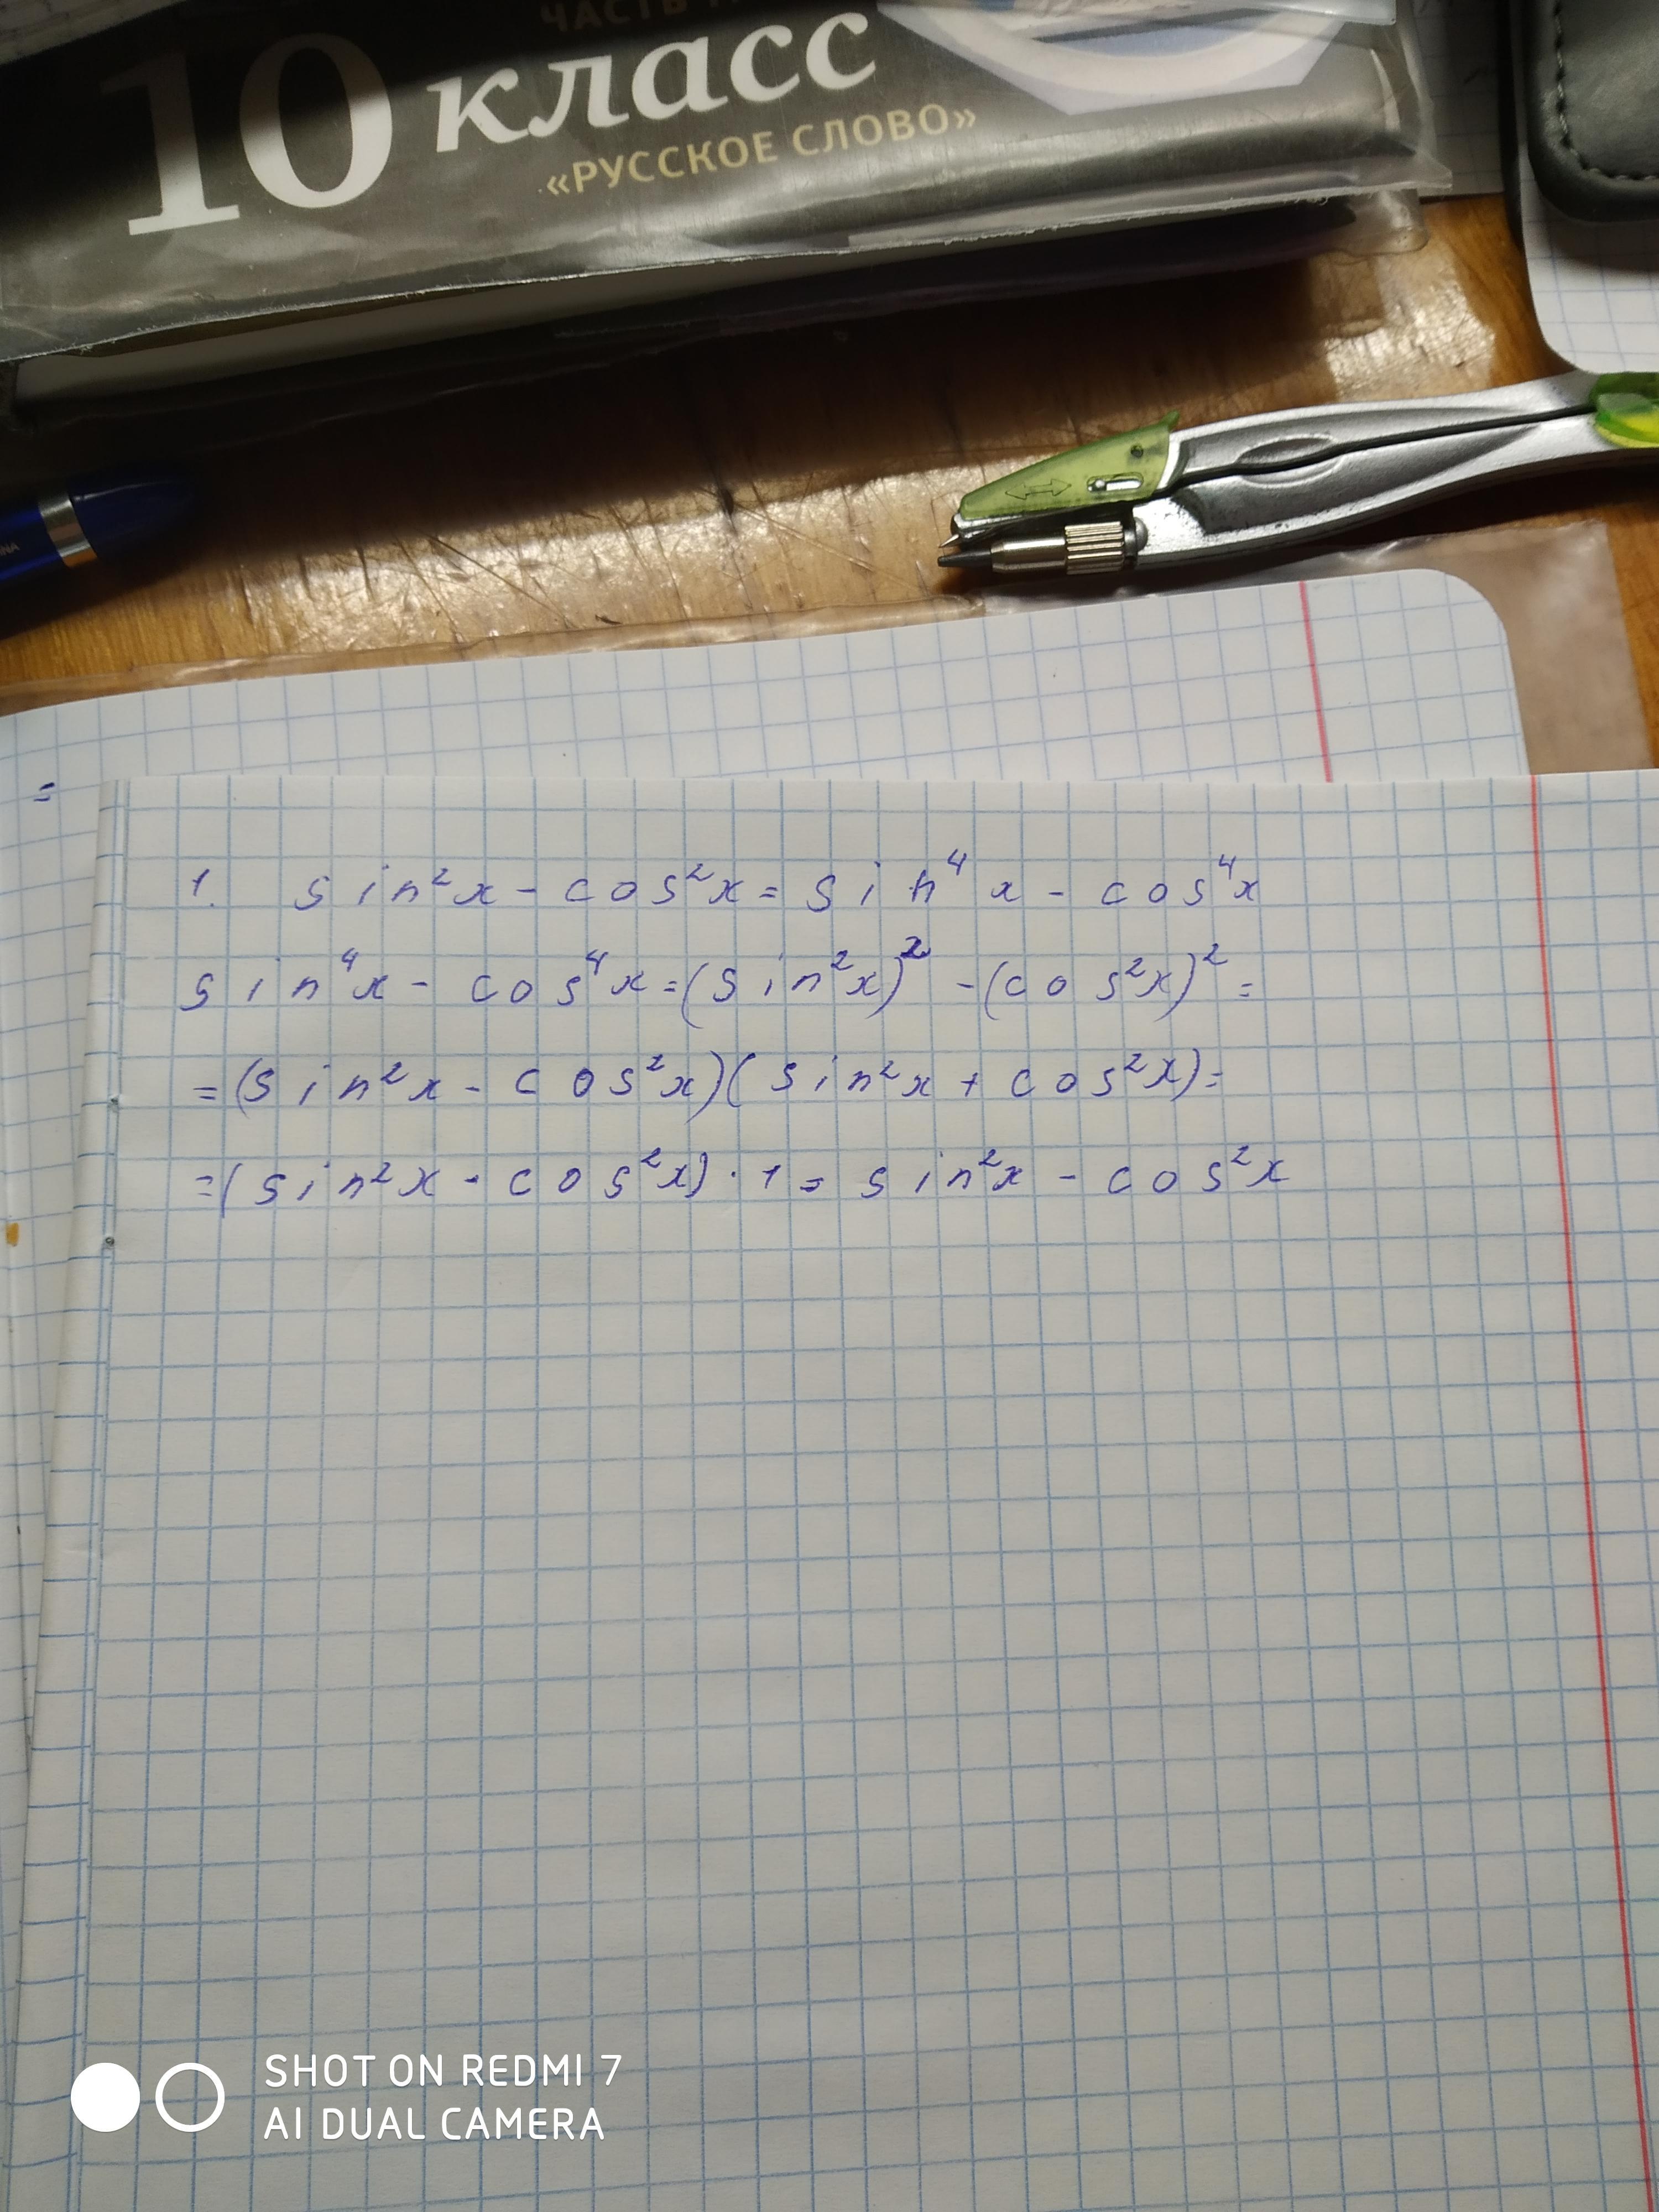 10 класс
«РУССКОЕ СЛОВО»
=
1. sin²x - cos²x = sin⁴x - cos⁴x
sin⁴x - cos⁴x = (sin²x)² - (cos²x)² =
= (sin²x - cos²x)(sin²x + cos²x) =
= (sin²x - cos²x) · 1 = sin²x - cos²x
SHOT ON REDMI 7
AI DUAL CAMERA